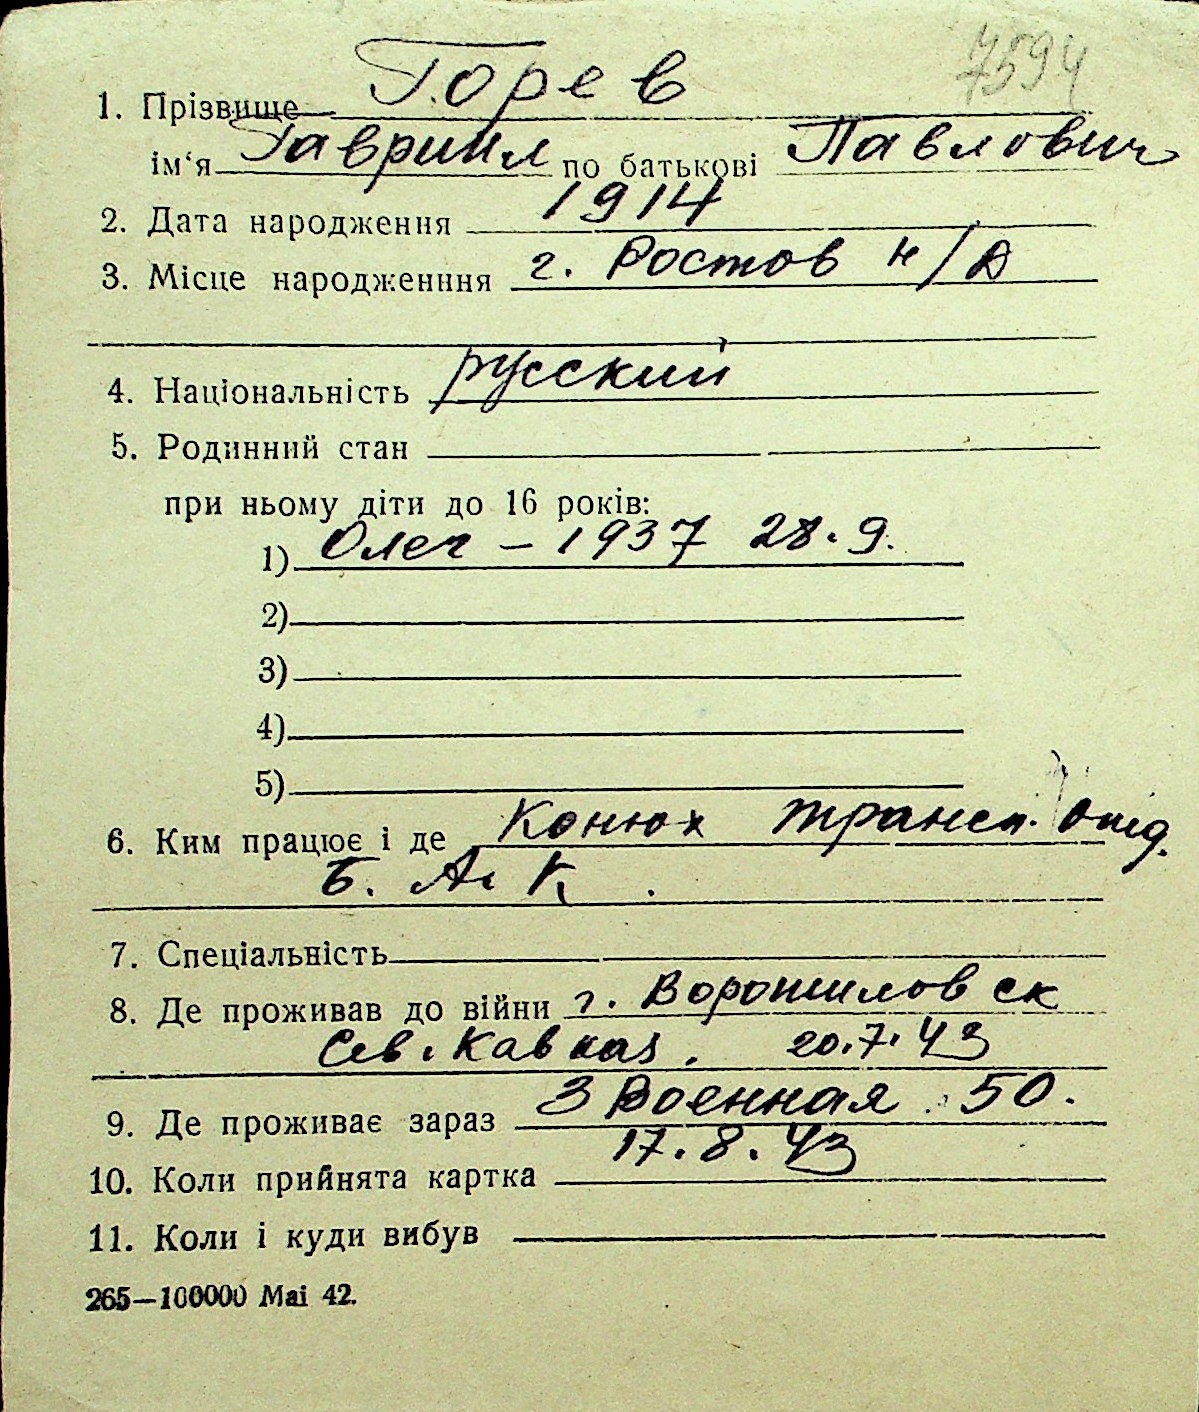 7594
1. Прізвище Горев
ім‘я Гавриил по батькові Павлович
2. Дата народження 1914
3. Місце народженння г. Ростов н/Д
4. Національність русский
5. Родинний стан
при ньому діти до 16 років:
1) Олег – 1937 28.9.
2)
3)
4)
5)
6. Ким працює і де Конюх трансп.
Б. А. К.
7. Спеціальність
8. Де проживав до війни г. Ворошиловск
Сев. Кавказ. 20.7.43
9. Де проживає зараз 3 Военная 50.
10. Коли прийнята картка 17.8.43
11. Коли і куди вибув
265—100000 Mai 42.